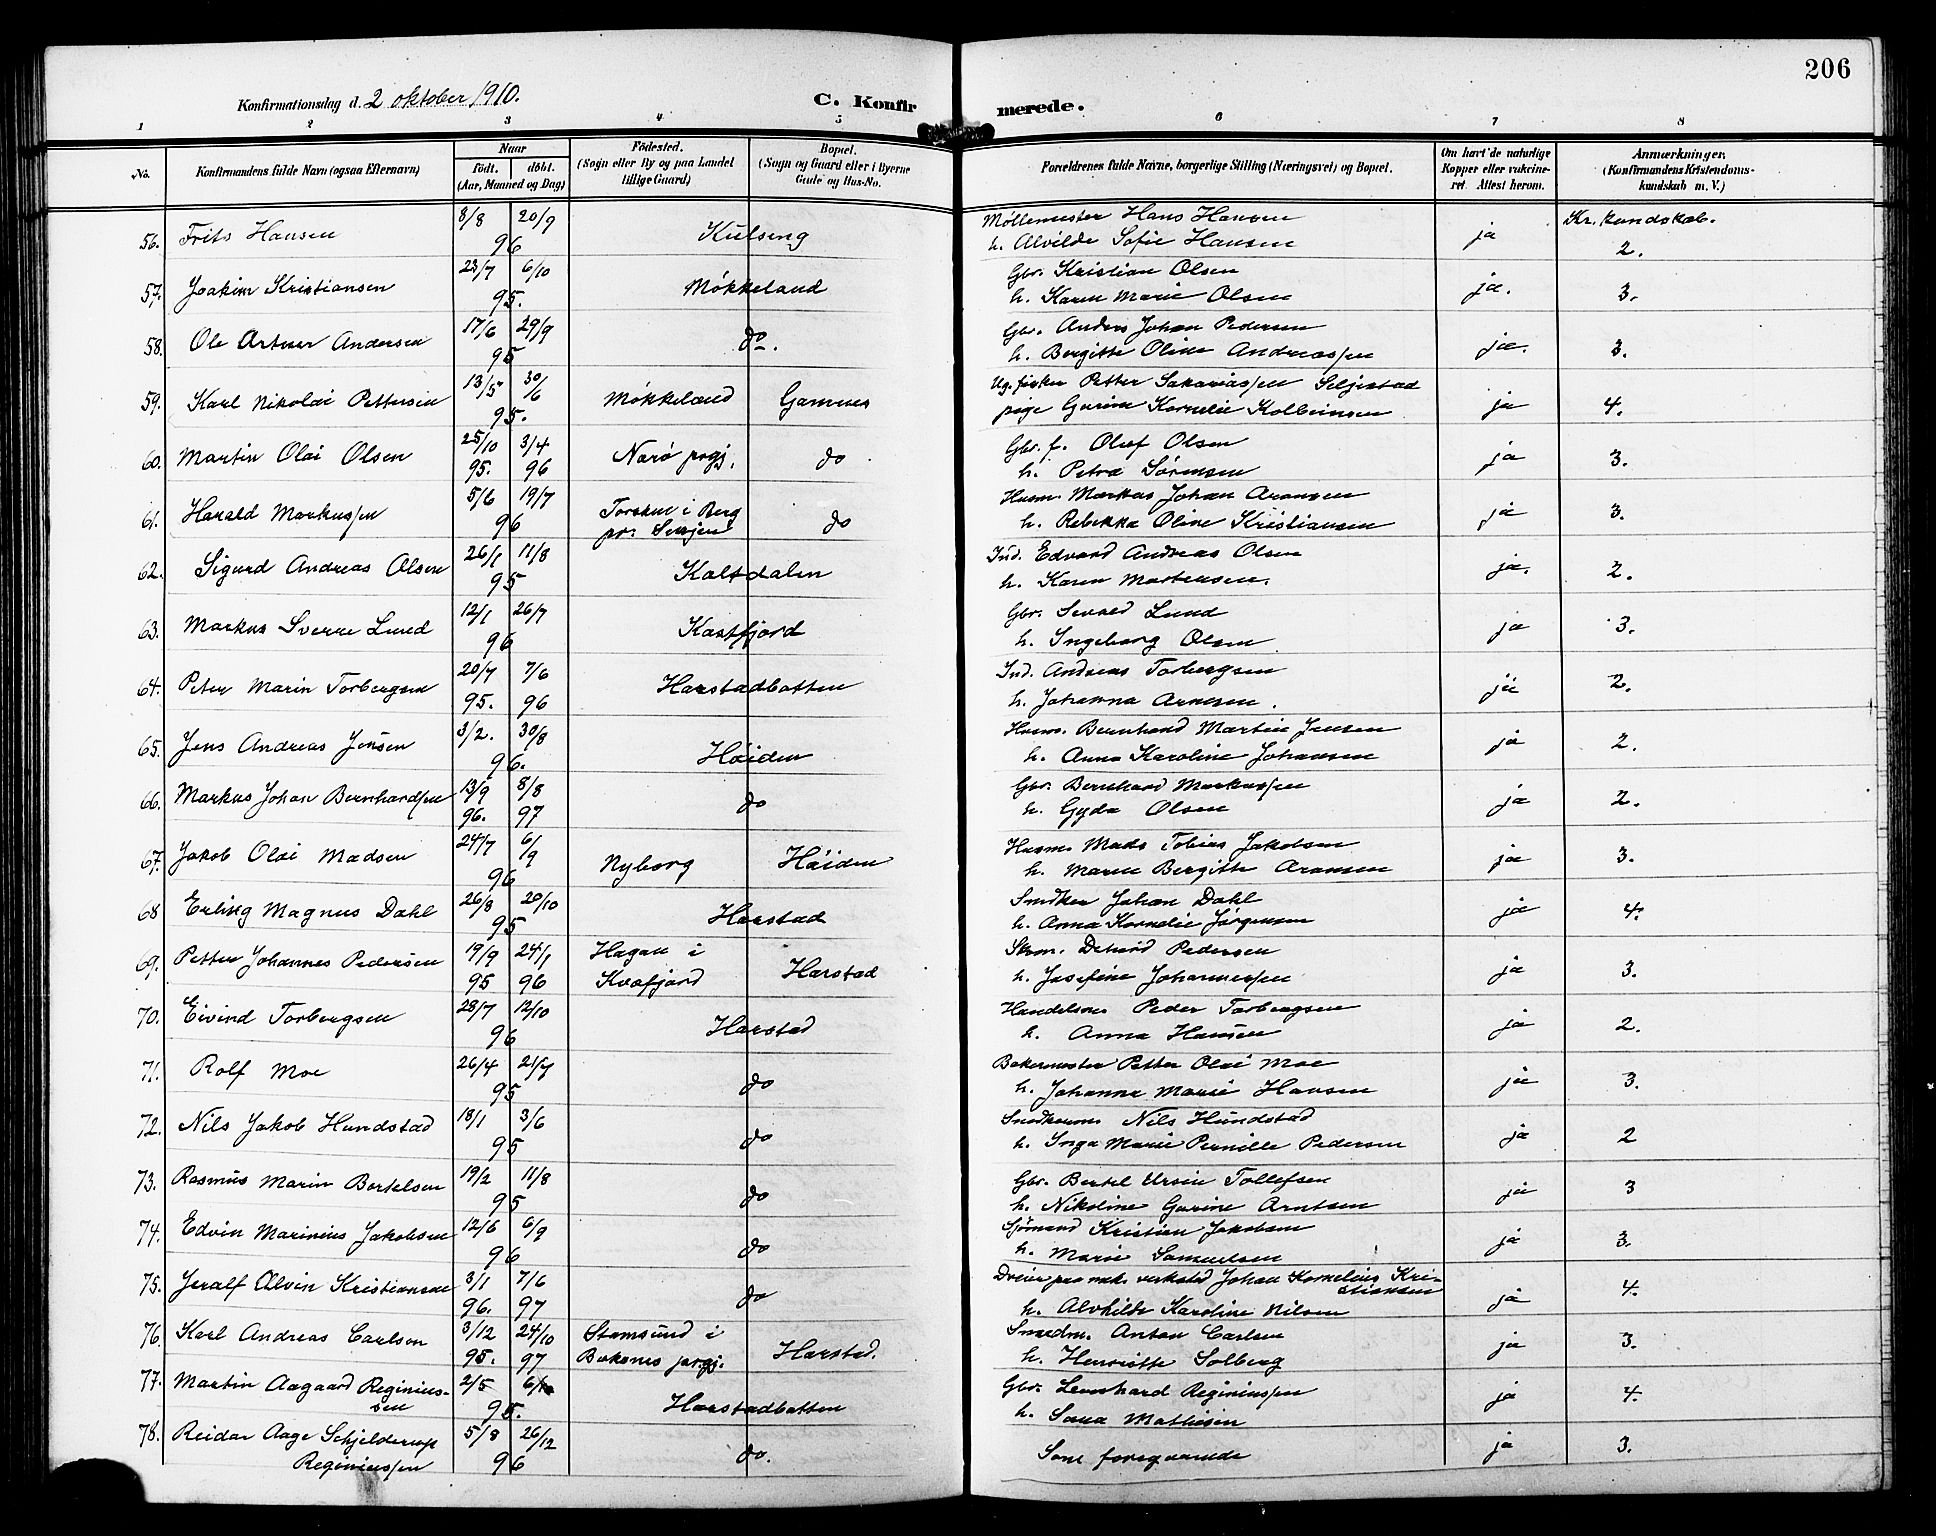 206
Konfirmationsdag d. 2 oktober 1910.
C. Konfirmerede.
1 2 3 4 5 6 7 8
No. Konfirmandens fulde Navn (ogsaa Efternavn) Naar født. døbt. (Aar, Maaned og Dag) Fødested. (Sogn eller By og paa Landet tillige Gaard) Bopæl. (Sogn og Gaard eller i Byerne Gade og Hus-No. Forældrenes fulde Navne, borgerlige Stilling (Næringsvei) og Bopæl. Om havt de naturlige Kopper eller vakcineret. Attest herom. Anmærkninger. (Konfirmandens Kristendomskundskab m. V.)
56. Frits Hansen 8/8 20/9 96 Kulseng Møllemester Hans Hansen ja Kr. kundskab.
h. Alvilde Sofie Hansen 2.
57. Joakim Kristiansen 23/7 6/10 95. Møkkeland Gbr. Kristian Olsen ja. 3.
h. Karen Marie Olsen
58. Ole Artur Andersen 17/6 29/9 95 do. Gbr. Anders Johan Pedersen ja. 3.
h. Bergitte Oline Andreassen
59. Karl Nikolai Pettersen 13/5 30/6 95. Møkkeland Gamnes Ug. fisker Petter Sakariassen Seljestad ja 4.
pige Gurine Kornelie Kolbeinsen
60. Martin Olai Olsen 25/10 95. 3/4 96 Narø prgj. do Gbr. f. Oluf Olsen ja 3.
h. Petra Sørensen
61. Harald Markussen 5/6 19/7 96 Torsken i Berg pr. Senjen do Husm. Markus Johan Aronsen ja 3.
h. Rebekka Oline Kristiansen
62. Sigurd Andreas Olsen 26/1 11/8 95 Kaltdalen Ind. Edvard Andreas Olsen ja. 2.
h. Karen Mortensen.
63. Markus Sverre Lund 12/1 26/7 96 Kastfjord Gbr. Sevald Lund ja 3.
h. Ingeborg Olsen
64. Peter Marin Torbergsen 20/7 95. 7/6 96 Harstadbotten Ind. Andreas Torbergsen ja 2.
h. Johanna Arnesen.
65. Jens Andreas Jensen 3/2. 30/8 96. Høiden Husm. Bernhard Martin Jensen ja 2.
h. Anna Karoline Johansen
66. Markus Johan Bernhardsen 13/9 96. 8/8 97 do Gbr. Bernhard Markussen ja 2.
h. Gyda Olsen
67. Jakob Olai Madsen 24/7 6/9 96 Nyborg Høiden Husm. Mads Tobias Jakobsen ja 3.
h. Maren Bergitte Aronsen
68 Erling Magnus Dahl 26/8 20/10 95 Harstad Snedker Johan Dahl ja 4.
h. Anna Kornelie Jørgensen
69. Petter Johannes Pedersen 19/9 95 24/1 96 Hagan i Kvæfjord Harstad Skom. Pedersen ja 3.
h. Josefine Johannessen
70. Eivind Torbergsen 28/7 12/10 96 Harstad Handelsm. Peder Torbergsen ja 2.
h. Anna Hansen
71. Rolf Moe 26/4 21/7 95 do Bakermester Petter Olai Moe ja 3.
h. Johanna Marie Hansen
72. Nils Jakob Hundstad 18/1 3/6 95 do Nils Hundstad ja 2
h. Inga Marie Pernille Pedersen
73. Rasmus Marin Bertelsen 19/2 11/8 95 do Gbr. Bertel Ursin Tollefsen ja 3
h. Nikoline Gurine Arntsen
74. Edvin Marinius Jakobsen 12/6 6/9 96 do Sjømand Kristian Jakobsen ja 3.
h. Marie Samuelsen
75. Jeralf Alvin Kristiansen 3/1 96. 7/6 97 do Dreier paa mek. verksted Johan Kornelius Kristiansen ja 4.
h. Alvhilde Karoline Nilsen
76. Karl Andreas Carlsen 3/12 95. 24/10 97 Stamsund i Buksnes prgj. Harstad. Smedm. Anton Carlsen ja 3.
h. Henriette Solberg
77. Martin Aagaard Reginiussen 2/5 95. Harstadbotten Gbr. Leonhard Reginiussen ja 4.
h. Sara Mathisen
78. Reidar Aage Schjelderup Reginiussen 5/8 26/12 96 do. Som foregaaende ja 3.